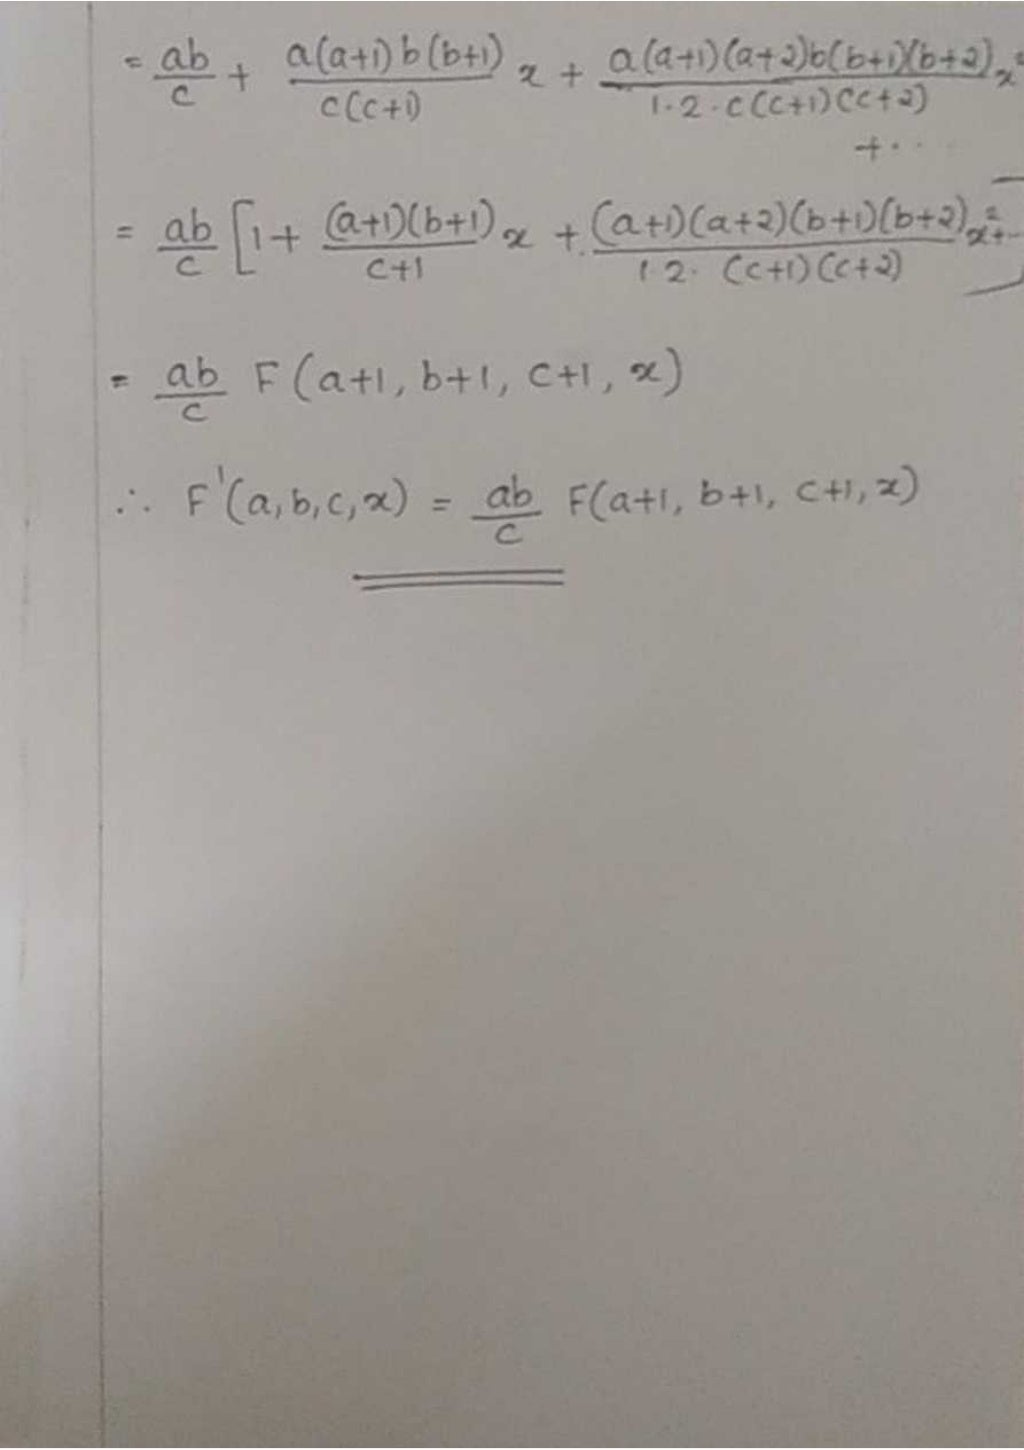 = ab/c + a(a+1)b(b+1)/c(c+1) x + a(a+1)(a+2)b(b+1)(b+2)/1·2·c(c+1)(c+2) x²
+ ··
= ab/c [1 + (a+1)(b+1)/c+1 x + (a+1)(a+2)(b+1)(b+2)/1·2·(c+1)(c+2) x² + ··]
= ab/c F(a+1, b+1, c+1, x)
∴ F'(a, b, c, x) = ab/c F(a+1, b+1, c+1, x)